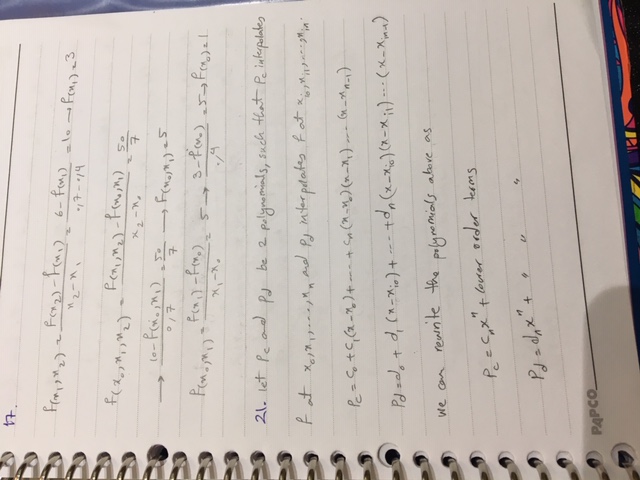 17.
f(x₁,x₂) = f(x₂)-f(x₁) / x₂-x₁ = 6-f(x₁) / 0,7-0,4 = 10 → f(x₁)=3
f(x₀,x₁,x₂) = f(x₁,x₂)-f(x₀,x₁) / x₂-x₀ = 50/7
→ 10-f(x₀,x₁) / 0,7 = 50/7 → f(x₀,x₁)=5
f(x₀,x₁) = f(x₁)-f(x₀) / x₁-x₀ = 5 → 3-f(x₀) / 0,4 = 5 → f(x₀)=1
21. let Pc and Pd be 2 polynomials, such that Pc interpolates
f at x₀,x₁,...,xₙ and Pd interpolates f at xᵢ₀,xᵢ₁,...,xᵢₙ.
Pc = c₀+c₁(x-x₀)+...+cₙ(x-x₀)(x-x₁)...(x-xₙ₋₁)
Pd = d₀+d₁(x-xᵢ₀)+...+dₙ(x-xᵢ₀)(x-xᵢ₁)...(x-xᵢₙ₋₁)
we can rewrite the polynomials above as
Pc = cₙxⁿ + lower order terms
Pd = dₙxⁿ + " " "
PAPCO